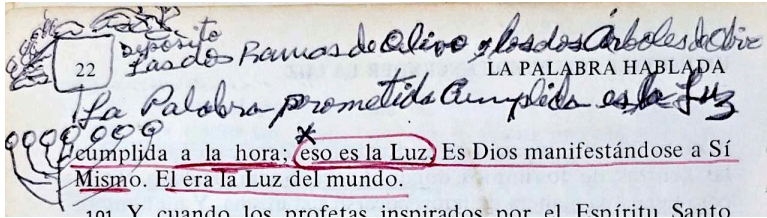 Depósito
Las dos Ramas de Olivo y los dos Árboles de Olivo
22
LA PALABRA HABLADA
La Palabra prometida Cumplida es la Luz
cumplida a la hora; eso es la Luz. Es Dios manifestándose a Sí
Mismo. El era la Luz del mundo.
101 Y cuando los profetas inspirados por el Espíritu Santo